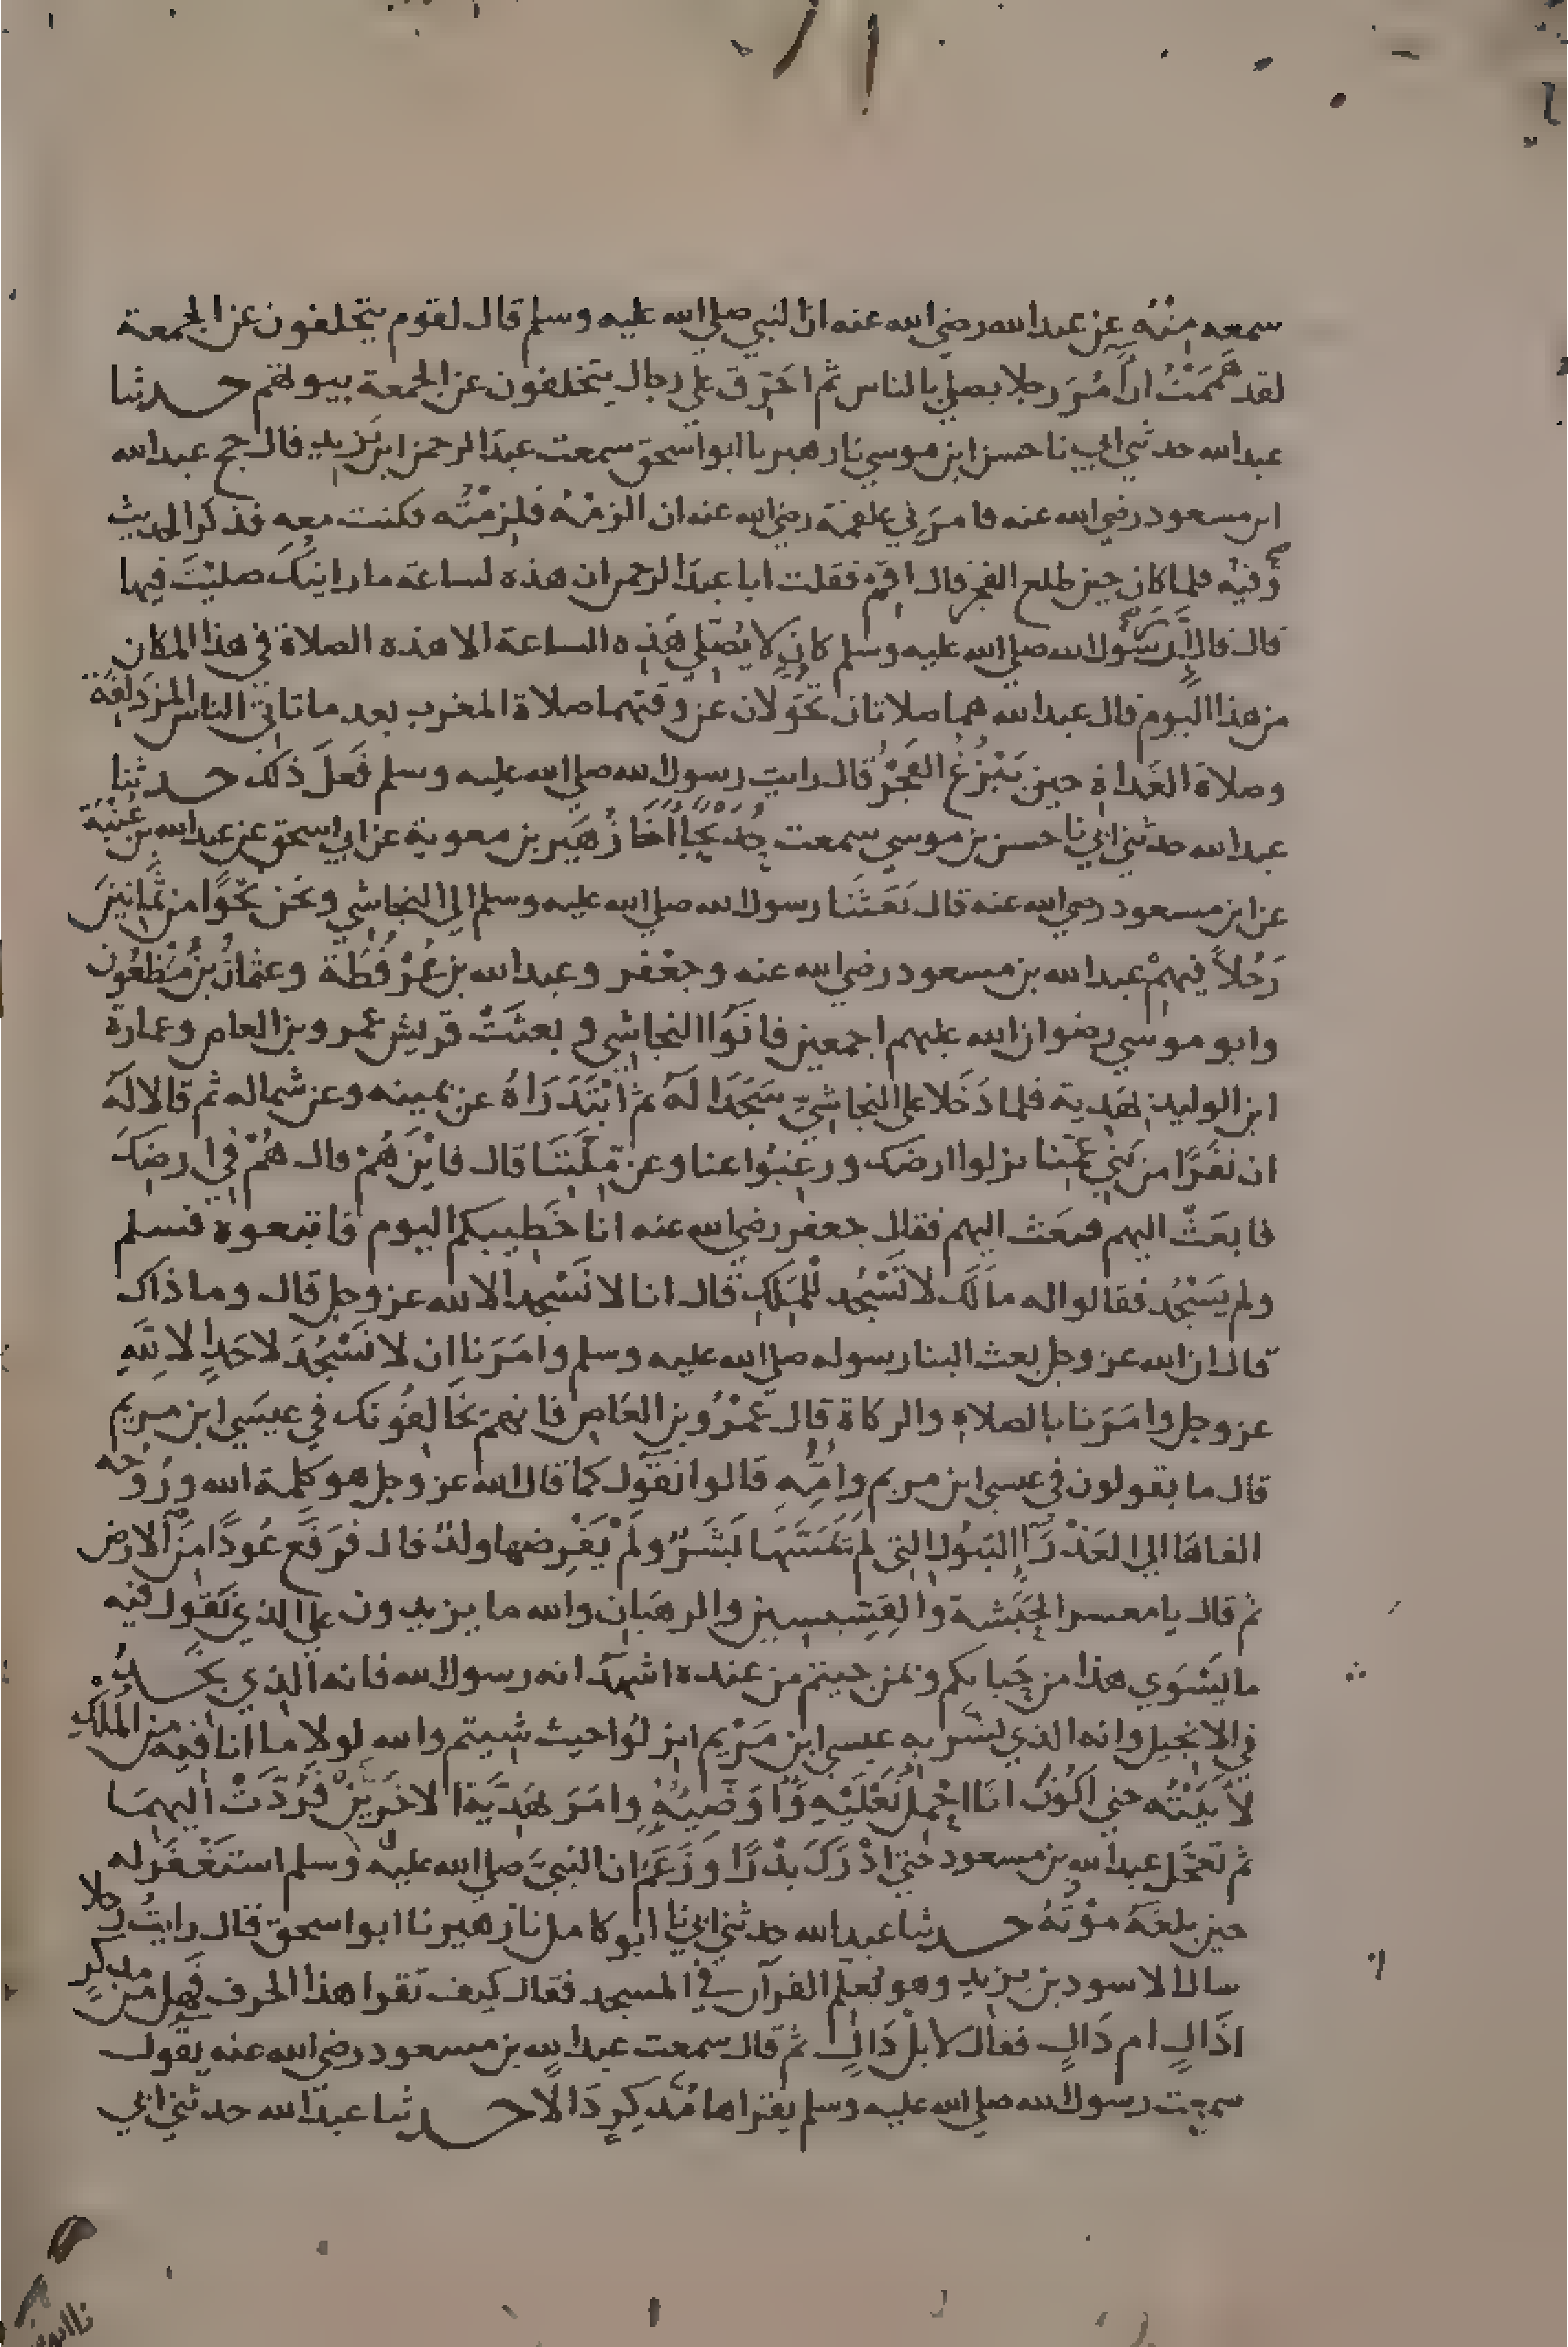 سمعه مِنْهُ عن عبد الله رضي الله عنه ان النبي صلى الله عليه وسلم قال لقوم يتخلفون عن الجمعة
لقد هَممَتْ ان آمُرَ رجلا يصلي بالناس ثم احَرِّق على رجال يتخلفون عن الجمعة بيوتهم حدثنا
عبد الله حدثني ابي نا حسن ابن موسى نا زهير نا ابو اسحق سمعت عبد الرحمن ابن يَزيد قال حج عبد الله
ابن مسعود رضي الله عنه فامرَني علقمة رضي الله عنه ان الزمَهُ فلزِمْتُه فكنت معه فذكر الحديث
وَفيه فلما كان حين طلع الفجر قال اقِم فقلت ابا عبد الرحمن ان هذه لساعة ما رايتكَ صليْتَ فيها
قال قال اِنَّ رَسُول الله صلى الله عليه وسلم كان لا يُصَلي هَذِه الساعة الا هذه الصلاة في هذا المكان
من هذا اليوم قال عبد الله هما صلاتان تحَوَّلان عن وقتهما صلاة المغرب بعد ما تاتي الناس المزدَلِفَة
وصلاة الغَداة حين يَبْزُغ الفَجْرُ قال رايت رسول الله صلى الله عليه وسلم فَعلَ ذَلك حدثنا
عبد الله حدثني ابي نا حسن بن موسى سمعت حُدَيْجًا اَخَا زُهَير بن معوية عن ابي اسحق عن عبد الله بن عُتْبَة
عن ابن مسعود رضي الله عنه قال بَعَثَنا رسول الله صلى الله عليه وسلم الى النجاشي ونحن نحْوًا من ثَمانينَ
رَجُلاً فيهِمْ عبد الله بن مسعود رضي الله عنه وجعْفر وعبد الله بن عُرْفُطَة وعثمانُ بنُ مَظْعُون
وابو موسى رضوان الله عليهم اجمعين فاتَوُا النجاشي وبعثَتْ قريش عمرو بن العاص وعمارة
ابن الوليد بهَدِية فلما دَخَلا على النجاشيّ سَجَدَا لَهُ ثم ابْتَدَرَاهُ عن يمينه وعن شماله ثم قالا لَهُ
ان نفَرًا من بَني عَمِّنا نزلوا ارضك ورغِبُوا عنا وعن مِلَّتِنَا قال فايْنَ هُمْ قال هُمْ في ارضِكَ
فابعَثْ اليهم فبعَث اليهم فقال جعفر رضي الله عنه انا خَطِيبكم اليوم فاتبعوه فسلم
ولم يَسْجُد فقالوا له مالَك لا تَسْجُد لْلمَلِكِ قال انا لا نَسْجد الا لله عز وجل قال وما ذاك
قال ان الله عز وجل بعث الينا رسوله صلى الله عليه وسلم وامَرَنا ان لا نَسْجُدَ لاحَدٍ اِلا لِلَّهِ
عز وجل وامَرَنا بالصلاةِ والزكاة قال عَمْرُو بن العَاص فانهم يخَالفُونَك في عيسَى ابن مريم
قال ما يقولون في عيسى ابن مريم وامِّهِ قالوا نقُول كما قال الله عز وجل هو كلمة الله ورُوحُه
القاهَا الى العَذْرَآءِ البَتُول التي لَم يَمَسَّهَا بَشَرٌ ولَمْ يَفْرِضها ولدٌ قال فرَفَع عُودًا مِنَ الارض
ثم قال يا معسر الحَبَشة والقِسِّيسين والرهبَانِ والله ما يزيدون على الذي نَقُول فيه
ما يَسْوَي هذا مرحَبا بكم وبمن جيتم من عنده اشهَدُ انه رسول الله فانه الذي نجدُ
في الانجيل وانه الذي بَشَّر به عيسى ابن مَرْيم انزلُوا حيث شيتم والله لولا ما انا فيه من المُلْك
لاَ تَيْتُه حتى اكُونَ انَا احْمِلُ نَعْلَيْهِ وَاُوَضِّيهُ وامَرَ بهَدِيَّة الاخَرَيْنِ فَرُدَّتْ اليهِمَا
ثم تعَجَّل عبد الله بن مسعود حتى ادْرَكَ بدْرًا وَزَعَمَ ان النبيَّ صلى الله عليه وسلم استَغْفَرَ له
حين بلغَهُ موْتُهُ حدثنا عبد الله حدثني ابي نا ابو كامل نا زهير نا ابو اسحق قال رايتُ رجلا
سال الاسود بن يزيد وهو يُعلم القرآن في المسجد فقال كيف تقرا هذا الحرف فَهل من مدكرٍ
اذَالٍ ام دَالٍ فقال لا بلْ دَالٍ ثم قال سمعت عبد الله بن مسعود رضي الله عنه يقول
سمعت رسول الله صلى الله عليه وسلم يقراها مُدَّكِرٍ دَالاً حدثنا عبد الله حدثني ابي